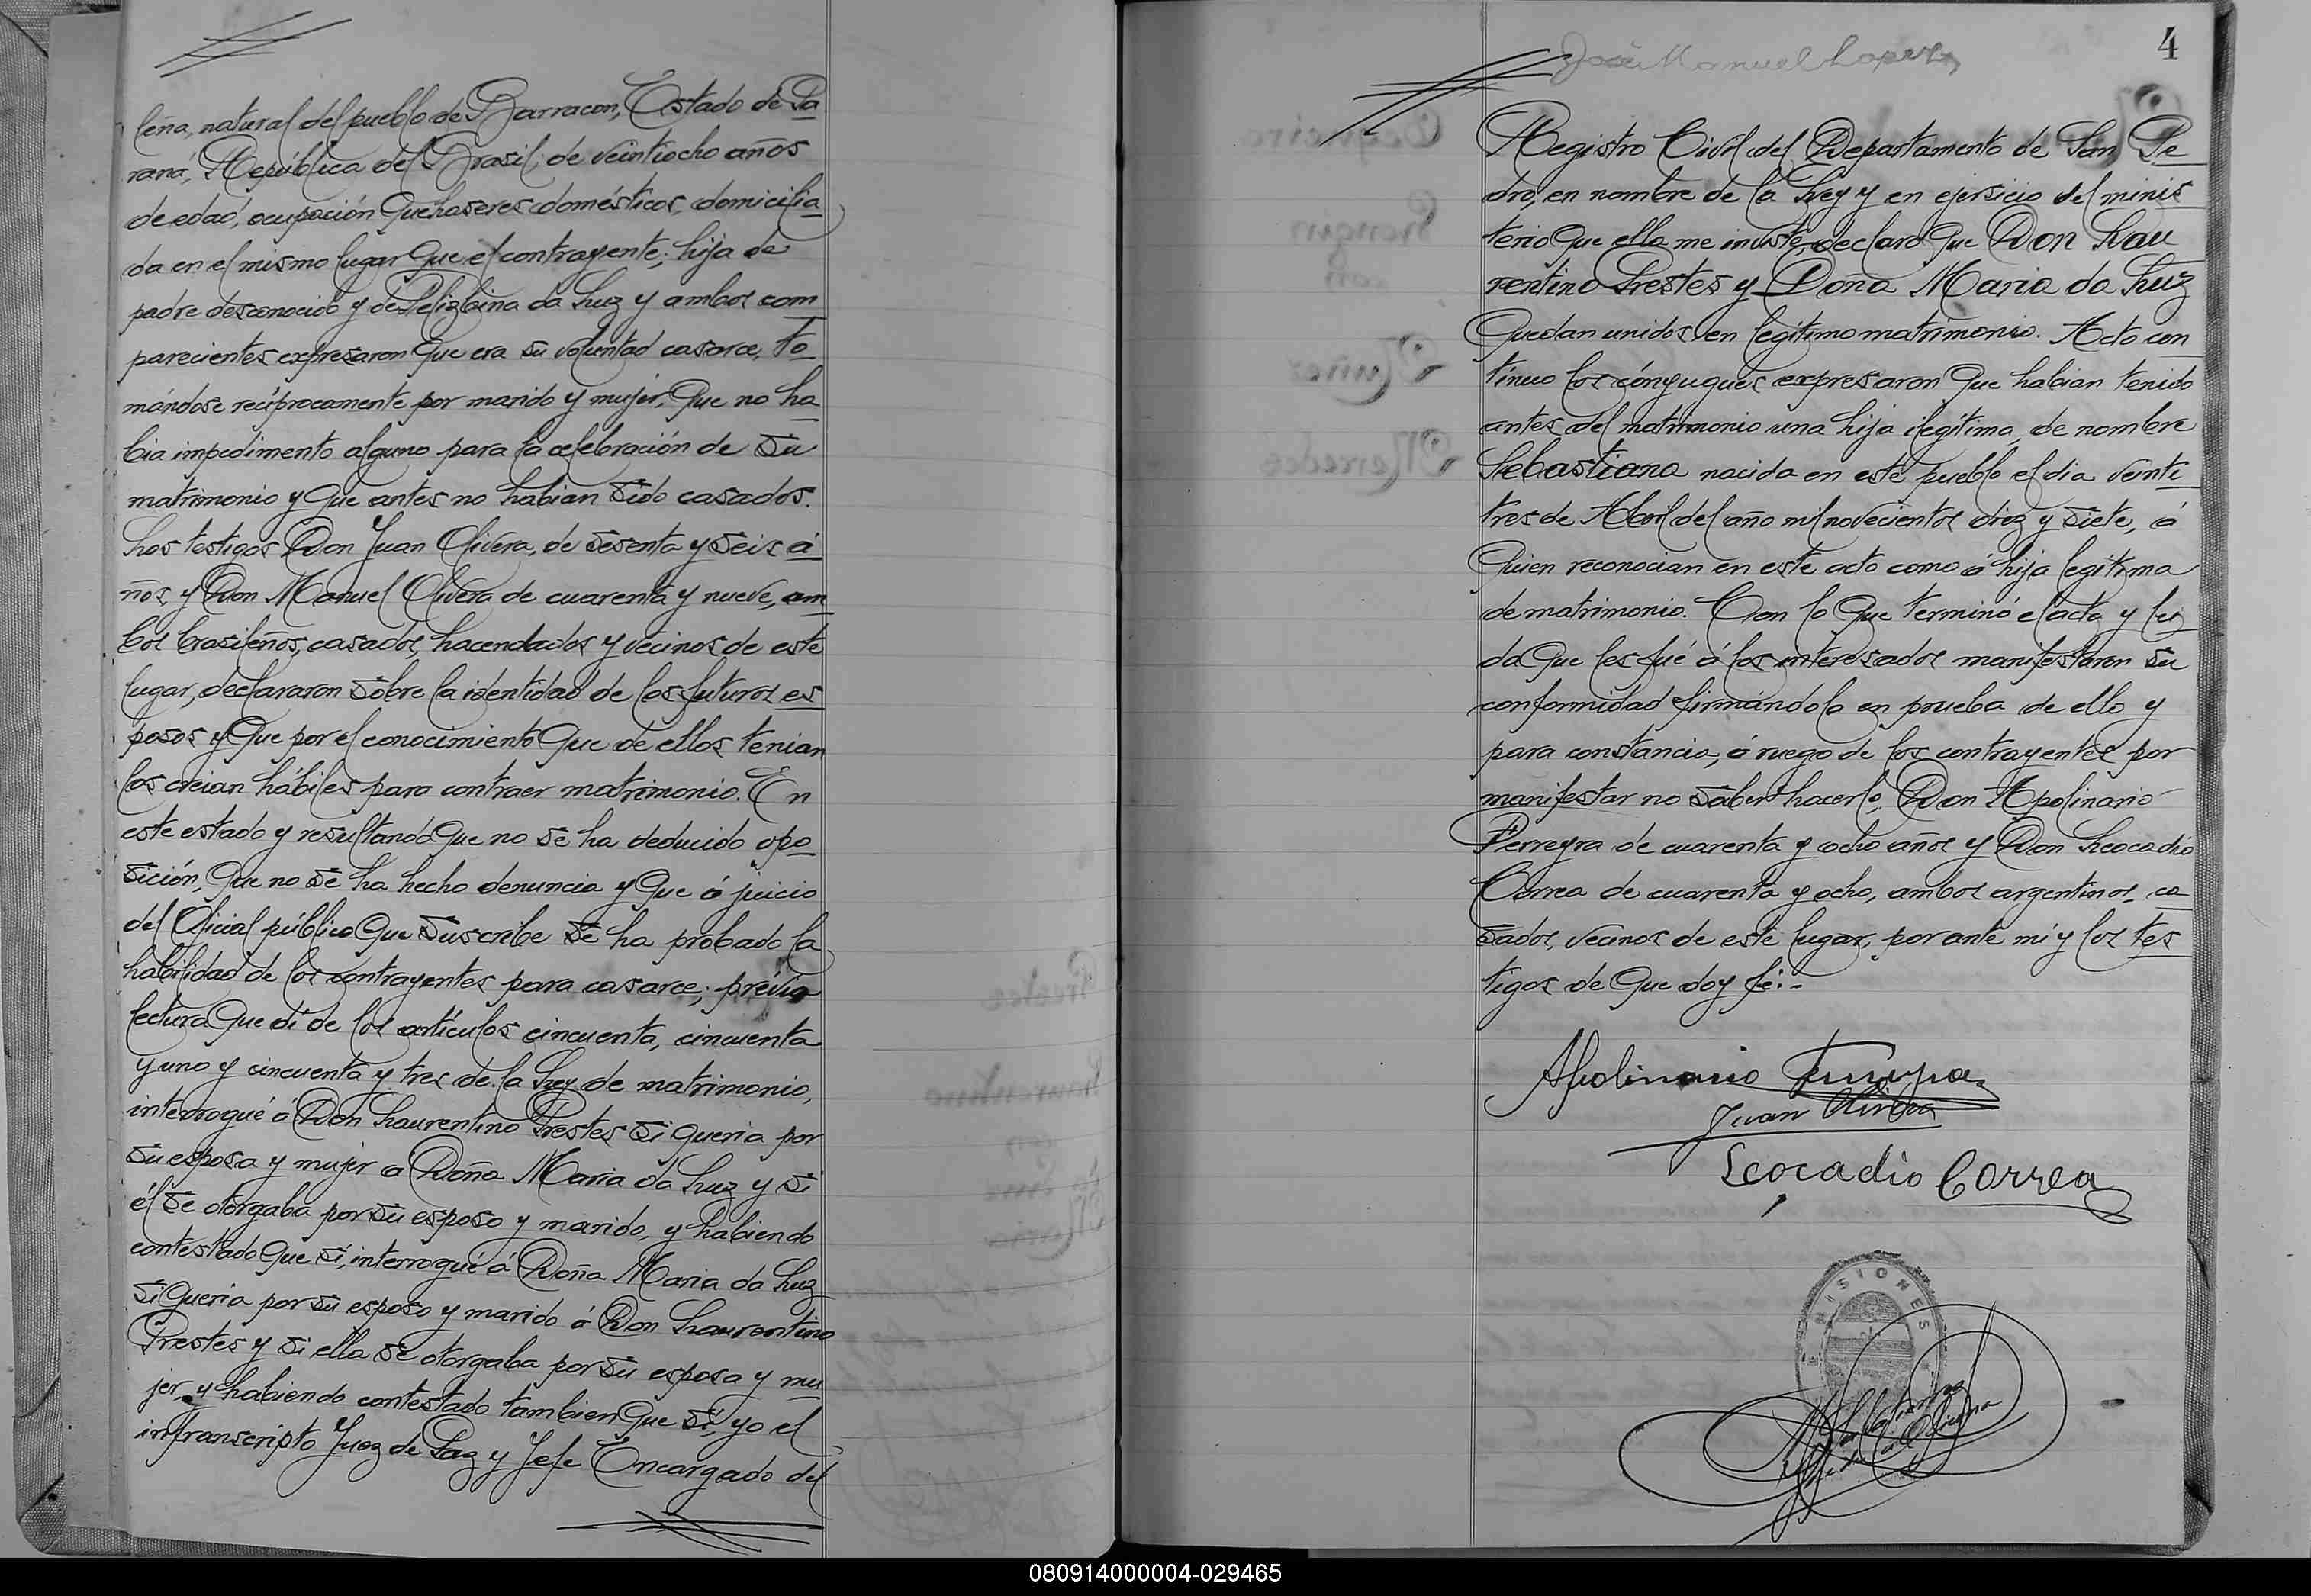 leña, natural del pueblo de Barracon, Estado de Pa
raná, República del Brasil, de veintiocho años
de edad, ocupación Quehaseres domésticos, domicilia
da en el mismo lugar Que el contrayente; hija de
padre desconocido y de Felizbina da Luz y ambos com
parecientes expresaron Que era su voluntad casarce, to
mándose recíprocamente por marido y mujer, Que no ha
bia impedimento alguno para la celebración de su
matrimonio y Que antes no habian sido casados.
Los testigos Don Juan Olivera, de sesenta y seis a
ños, y Don Manuel Olivera de cuarenta y nueve, am
bos brasileños, casados, hacendados y vecinos de este
lugar, declararon sobre la identidad de los futuros es
posos y Que por el conocimiento Que de ellos tenian
los creian hábiles para contraer matrimonio. En
este estado y resultando Que no se ha deducido opo
sición, Que no se ha hecho denuncia y Que á juicio
del Oficial público Que suscribe se ha probado la
habilidad de los contrayentes para casarce; prévia
lectura Que dí de los artículos cincuenta, cincuenta
y uno y cincuenta y tres de la Ley de matrimonio,
interrogué á Don Laurentino Prestes si Queria por
su esposa y mujer a Doña Maria da Luz y si
él se otorgaba por su esposo y marido, y habiendo
contestado Que sí, interrogué á Doña Maria da Luz
si Queria por su esposo y marido á Don Laurentino
Prestes y si ella se otorgaba por su esposa y mu
jer y habiendo contestado tambien Que sí, yo el
infranscripto Juez de Paz y Jefe Encargado del
José Manuel Lopez
4
Registro Civil del Departamento de San Pe
dro, en nombre de la Ley y en ejersicio del minis
terio Que ella me inviste, declaro Que Don Lau
rentino Prestes y Doña Maria da Luz
Quedan unidos en legítimo matrimonio. Acto con
tínuo los cónyugues expresaron Que habian tenido
antes del matrimonio una hija ilegítima, de nombre
Sebastiana nacida en este pueblo el dia veinti
tres de Abril del año mil novecientos diez y siete, á
Quien reconocian en este acto como á hija legítima
de matrimonio. Con lo Que terminó el acta y lei
da Que les fué á los interesados manifestaron su
conformidad firmándola en prueba de ello y
para constancia, á ruego de los contrayentes por
manifestar no saber hacerlo, Don Apolinario
Ferreyra de cuarenta y ocho años y Don Leocadio
Correa de cuarenta y ocho, ambos argentinos, ca
sados, vecinos de este lugar, por ante mí y los tes
tigos de Que doy fé:-
Apolinario Ferreyra
Juan Olivera
Leocadio Correa
MISIONES
080914000004-029465